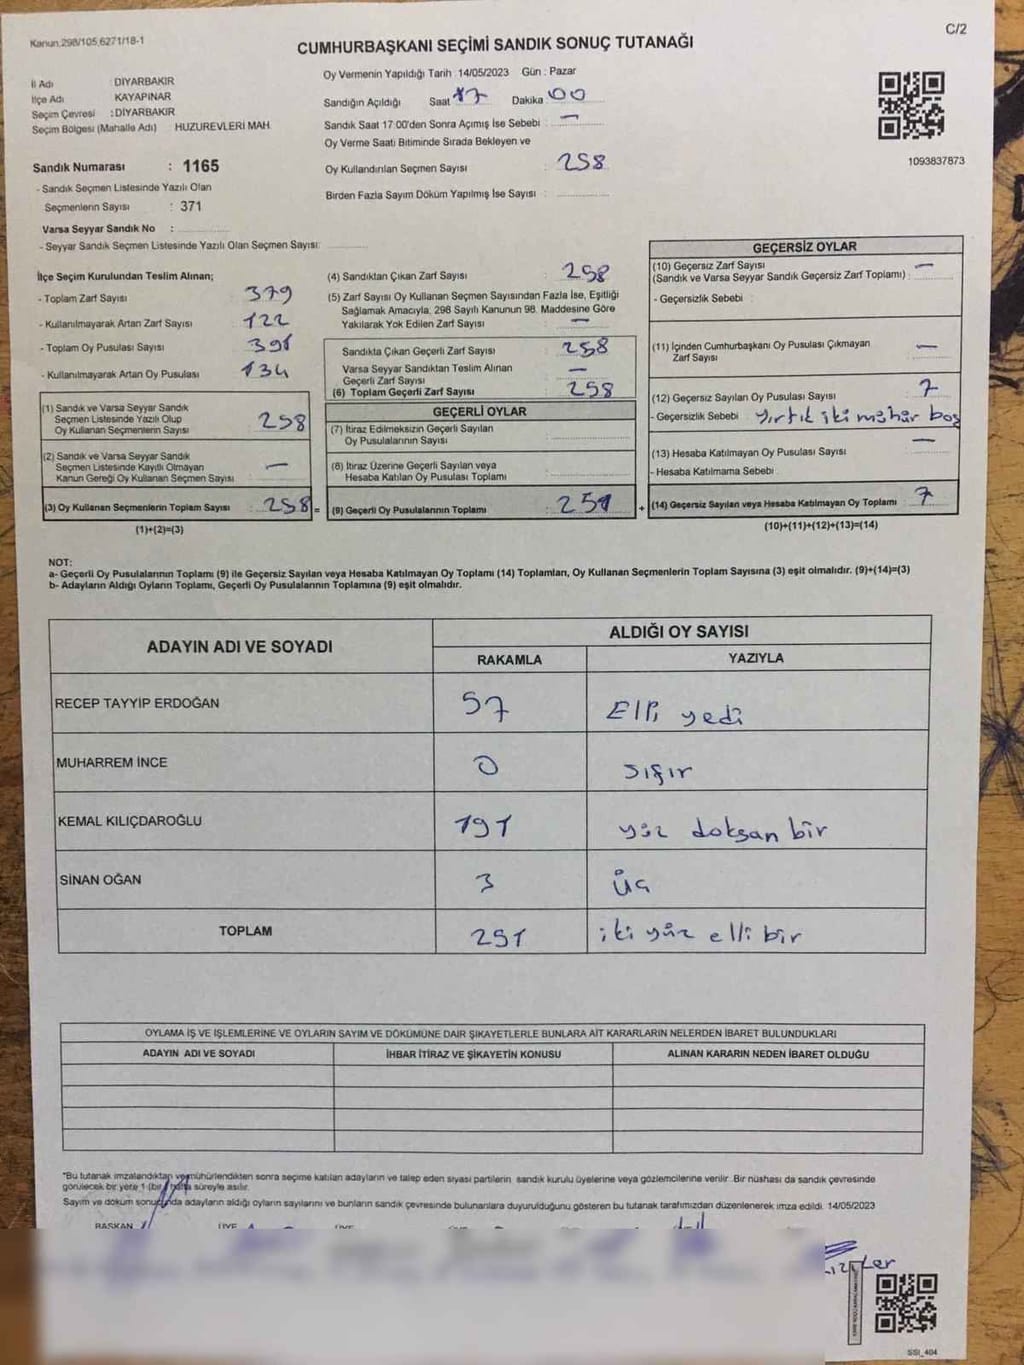 Kanun.298/105,6271/18-1
C/2
CUMHURBAŞKANI SEÇİMİ SANDIK SONUÇ TUTANAĞI
İl Adı DİYARBAKIR
İlçe Adı KAYAPINAR
Seçim Çevresi : DİYARBAKIR
Seçim Bölgesi (Mahalle Adı) HUZUREVLERİ MAH.
Oy Vermenin Yapıldığı Tarih : 14/05/2023 Gün : Pazar
Sandığın Açıldığı Saat 17 Dakika 00
Sandık Saat 17:00'den Sonra Açımış İse Sebebi : —
Oy Verme Saati Bitiminde Sırada Bekleyen ve
Oy Kullandırılan Seçmen Sayısı : 258
Birden Fazla Sayım Döküm Yapılmış İse Sayısı :
1093837873
Sandık Numarası : 1165
- Sandık Seçmen Listesinde Yazılı Olan
Seçmenlerin Sayısı : 371
Varsa Seyyar Sandık No :
- Seyyar Sandık Seçmen Listesinde Yazılı Olan Seçmen Sayısı:
İlçe Seçim Kurulundan Teslim Alınan;
- Toplam Zarf Sayısı 379
- Kullanılmayarak Artan Zarf Sayısı 122
- Toplam Oy Pusulası Sayısı
- Kullanılmayarak Artan Oy Pusulası 134
(1) Sandık ve Varsa Seyyar Sandık
Seçmen Listesinde Yazılı Olup
Oy Kullanan Seçmenlerin Sayısı 258
(2) Sandık ve Varsa Seyyar Sandık
Seçmen Listesinde Kayıtlı Olmayan
Kanun Gereği Oy Kullanan Seçmen Sayısı —
(3) Oy Kullanan Seçmenlerin Toplam Sayısı : 258 =
(1)+(2)=(3)
(4) Sandıktan Çıkan Zarf Sayısı : 258
(5) Zarf Sayısı Oy Kullanan Seçmen Sayısından Fazla İse, Eşitliği
Sağlamak Amacıyla; 298 Sayılı Kanunun 98. Maddesine Göre
Yakılarak Yok Edilen Zarf Sayısı : —
Sandıkta Çıkan Geçerli Zarf Sayısı : 258
Varsa Seyyar Sandıktan Teslim Alınan
Geçerli Zarf Sayısı : —
(6) Toplam Geçerli Zarf Sayısı : 258
GEÇERLİ OYLAR
(7) İtiraz Edilmeksizin Geçerli Sayılan
Oy Pusulalarının Sayısı :
(8) İtiraz Üzerine Geçerli Sayılan veya
Hesaba Katılan Oy Pusulası Toplamı :
(9) Geçerli Oy Pusulalarının Toplamı : 251 +
GEÇERSİZ OYLAR
(10) Geçersiz Zarf Sayısı —
(Sandık ve Varsa Seyyar Sandık Geçersiz Zarf Toplamı) :
- Geçersizlik Sebebi :
(11) İçinden Cumhurbaşkanı Oy Pusulası Çıkmayan
Zarf Sayısı : —
(12) Geçersiz Sayılan Oy Pusulası Sayısı : 7
- Geçersizlik Sebebi : Yırtık iki mühür boş
(13) Hesaba Katılmayan Oy Pusulası Sayısı : —
- Hesaba Katılmama Sebebi :
(14) Geçersiz Sayılan veya Hesaba Katılmayan Oy Toplamı : 7
(10)+(11)+(12)+(13)=(14)
NOT:
a- Geçerli Oy Pusulalarının Toplamı (9) ile Geçersiz Sayılan veya Hesaba Katılmayan Oy Toplamı (14) Toplamları, Oy Kullanan Seçmenlerin Toplam Sayısına (3) eşit olmalıdır. (9)+(14)=(3)
b- Adayların Aldığı Oyların Toplamı, Geçerli Oy Pusulalarının Toplamına (9) eşit olmalıdır.
ADAYIN ADI VE SOYADI ALDIĞI OY SAYISI
RAKAMLA YAZIYLA
RECEP TAYYİP ERDOĞAN 57 Elli yedi
MUHARREM İNCE 0 sıfır
KEMAL KILIÇDAROĞLU 191 yüz doksan bir
SİNAN OĞAN 3 üç
TOPLAM 251 iki yüz elli bir
OYLAMA İŞ VE İŞLEMLERİNE VE OYLARIN SAYIM VE DÖKÜMÜNE DAİR ŞİKAYETLERLE BUNLARA AİT KARARLARIN NELERDEN İBARET BULUNDUKLARI
ADAYIN ADI VE SOYADI İHBAR İTİRAZ VE ŞİKAYETİN KONUSU ALINAN KARARIN NEDEN İBARET OLDUĞU
*Bu tutanak imzalandıktan ve mühürlendikten sonra seçime katılan adayların ve talep eden siyasi partilerin sandık kurulu üyelerine veya gözlemcilerine verilir. Bir nüshası da sandık çevresinde
görülecek bir yere 1 (bir) hafta süreyle asılır.
Sayım ve döküm sonucunda adayların aldığı oyların sayılarını ve bunların sandık çevresinde bulunanlara duyurulduğunu gösteren bu tutanak tarafımızdan düzenlenerek imza edildi. 14/05/2023
BAŞKAN ÜYE ÜYE
SSİ_404